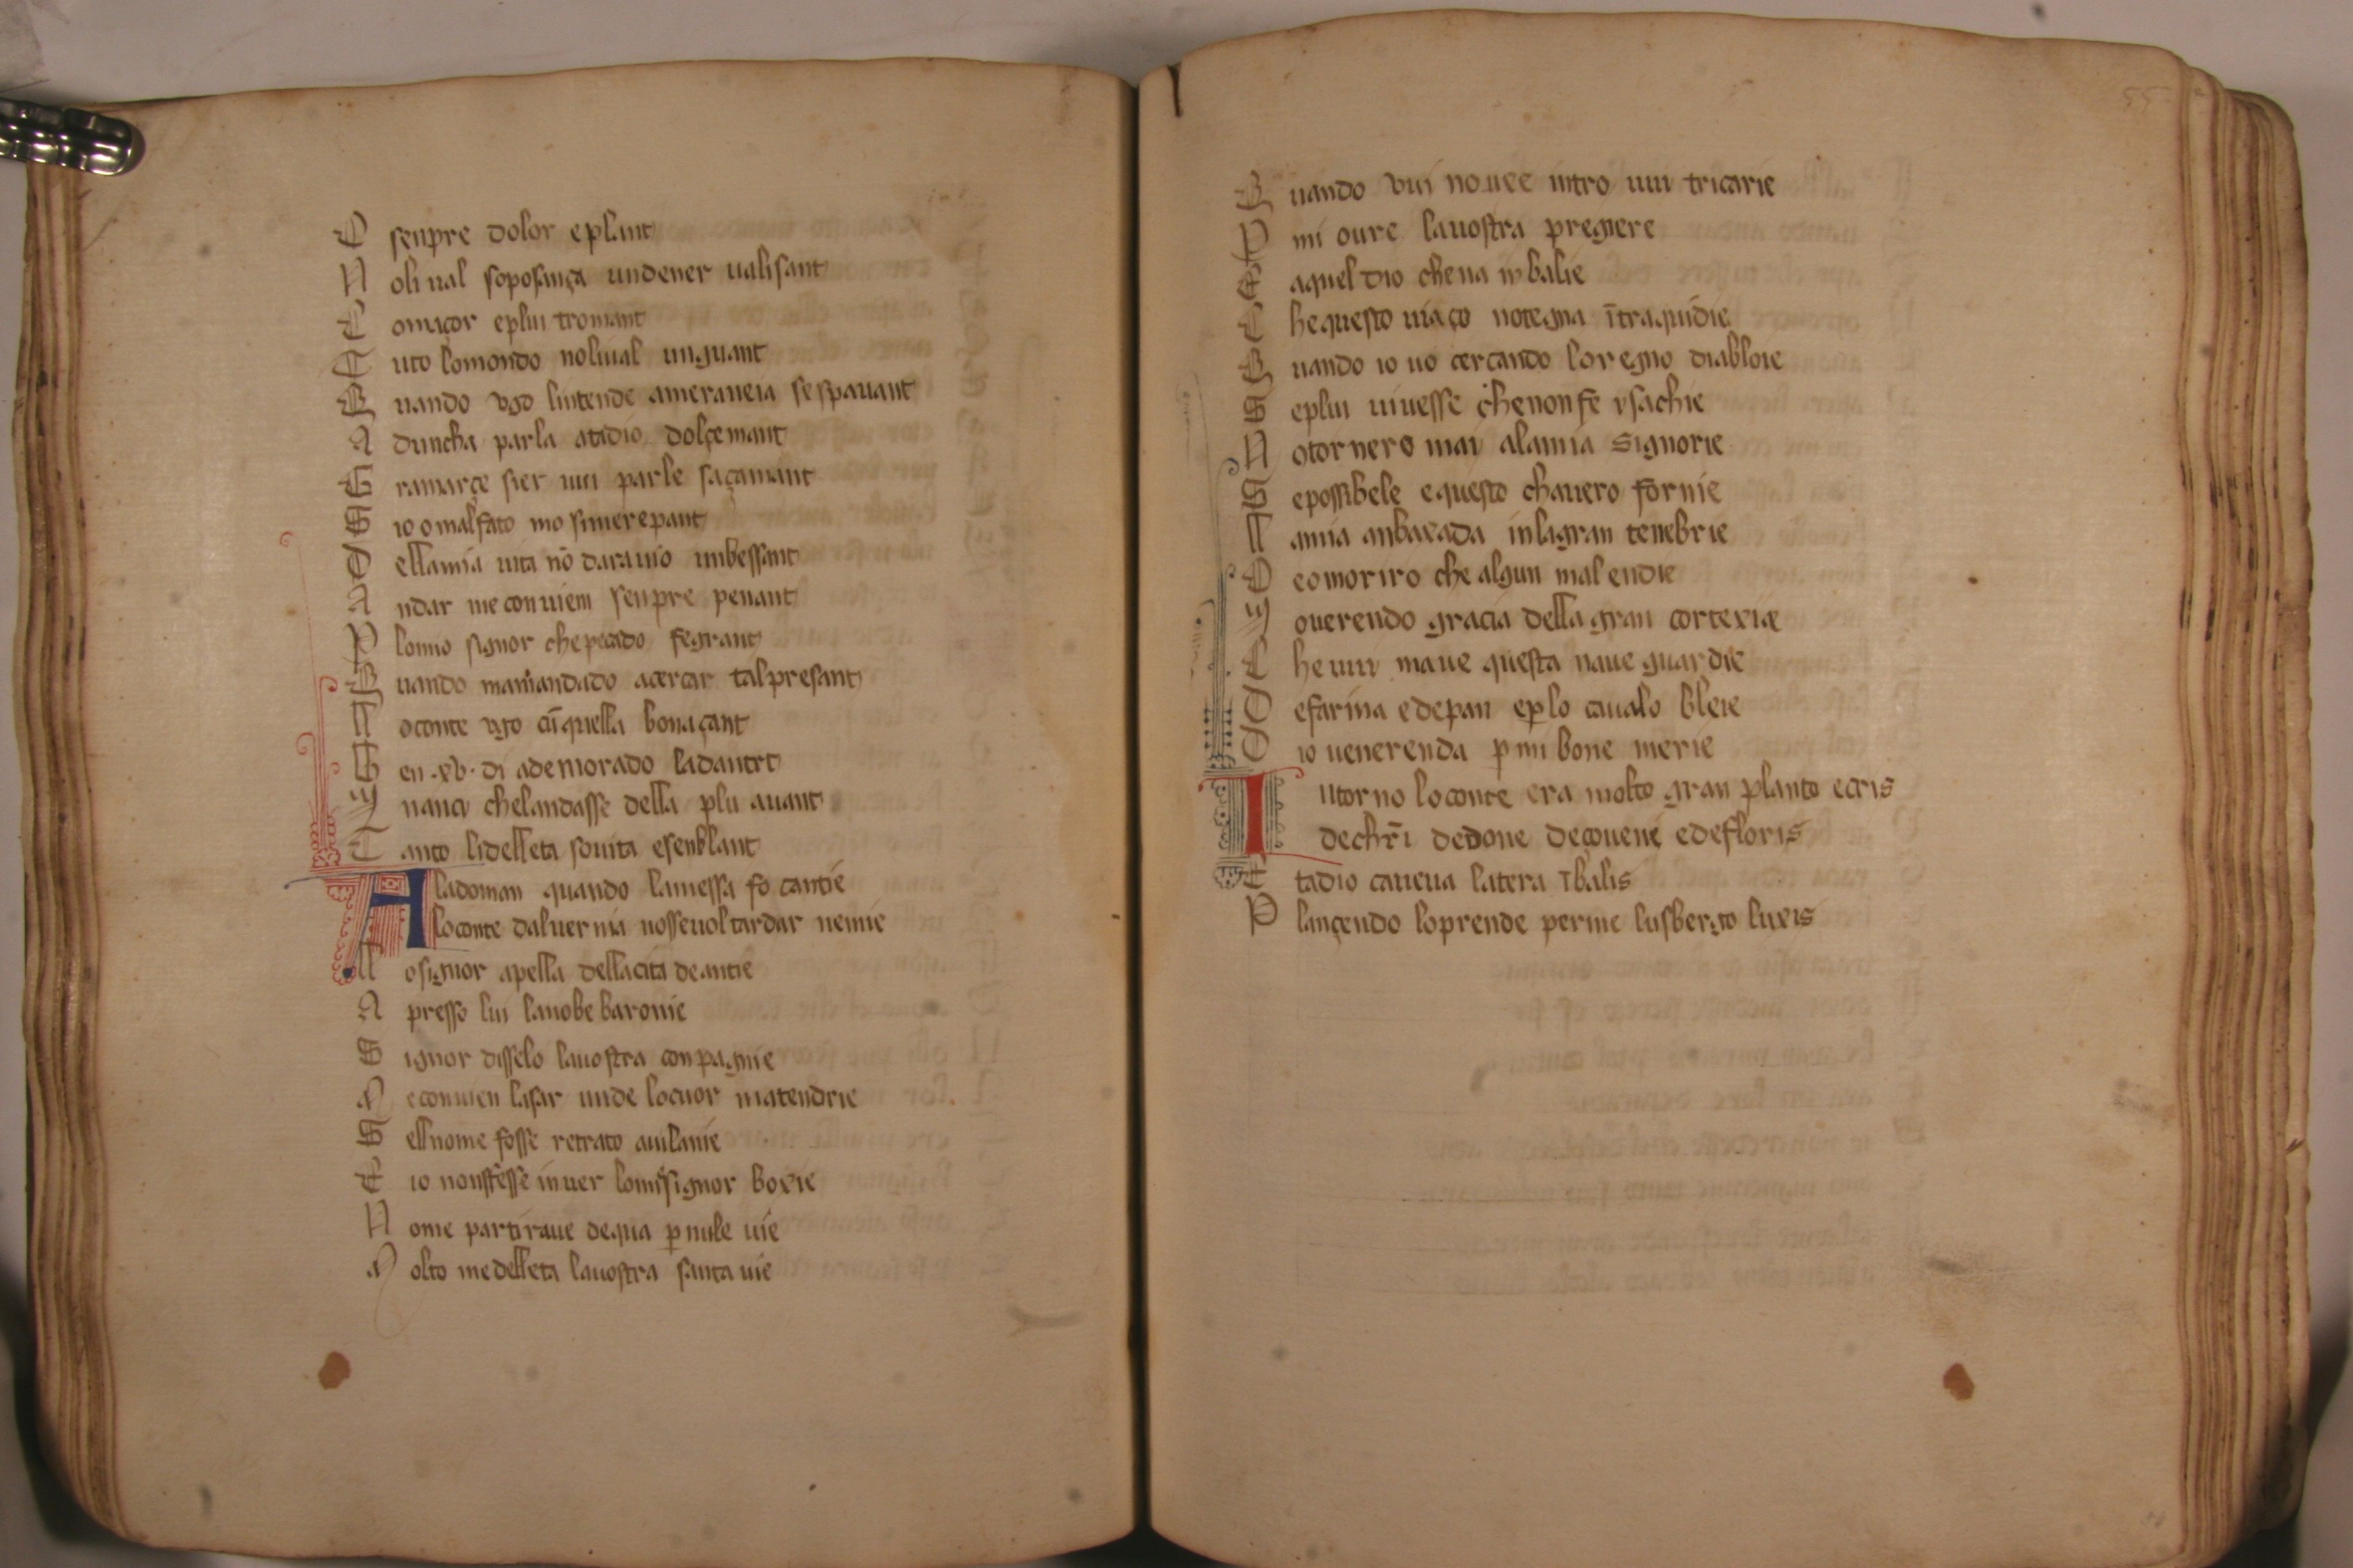 O senpre dolor e plant
N oli ual soposança un dener ualisant
C omaçor e plui tromant
T uto lo mondo no li ual unguant
Q uando vgo lintende ameraueia se spauant
A duncha parla atadio dolçemant
G ramarçe sier uui parle saçamant
S io o malfato mo simerepant
D ella mia uita nō darauio unbessant
A ndar me conuiem senpre penant
P lo mio signor che pecado fe grant
Q uando mamandado acercar tal presant
L o conte vgo cū quella bona çant
B en .xv. di ademorado ladantrt
I nanci chel andasse della plu auant
T anto li delleta so uita e senblant
A la doman quando la messa fo cantie
lo conte daluernia nosse uol tardar nemie
L o signor apella della cita de antie
A presso lui la nobe baronie
S ignor disselo la uostra conpagnie
M e conuien lasar unde lo cuor matendrie
S ell nome fosse retrato auilanie
E io nonffesse inuer lo mi signor boxie
N o me partiraue de qua p nule uie
M olto me delleta la uostra santa uie
55
Q uando vui no uee intro uui tricarie
P mi oure la uostra pregiere
E aquel dio che na in balie
C he questo uiaço no tegna ītraquidie
Q uando io uo cercando lo regno diabloie
S e plui uiuesse che non fe ysachie
N o tornero mai ala mia signorie
S e possibele e questo chauero fornie
L a mia anbaxada in la gran tenebrie
O eo moriro che algun mal en die
M ouerendo gracia della gran cortexiæ
C he uui maue questa naue guardie
D e farina e de pan e plo caualo bleie
D io uenerenda p mi bone merie
I ntorno lo conte era molto gran planto e cris
de chr̄i de done de çouene e de floris
E tadio caueua latera ī balis
P lançendo lo prende per me lusbergo luxis